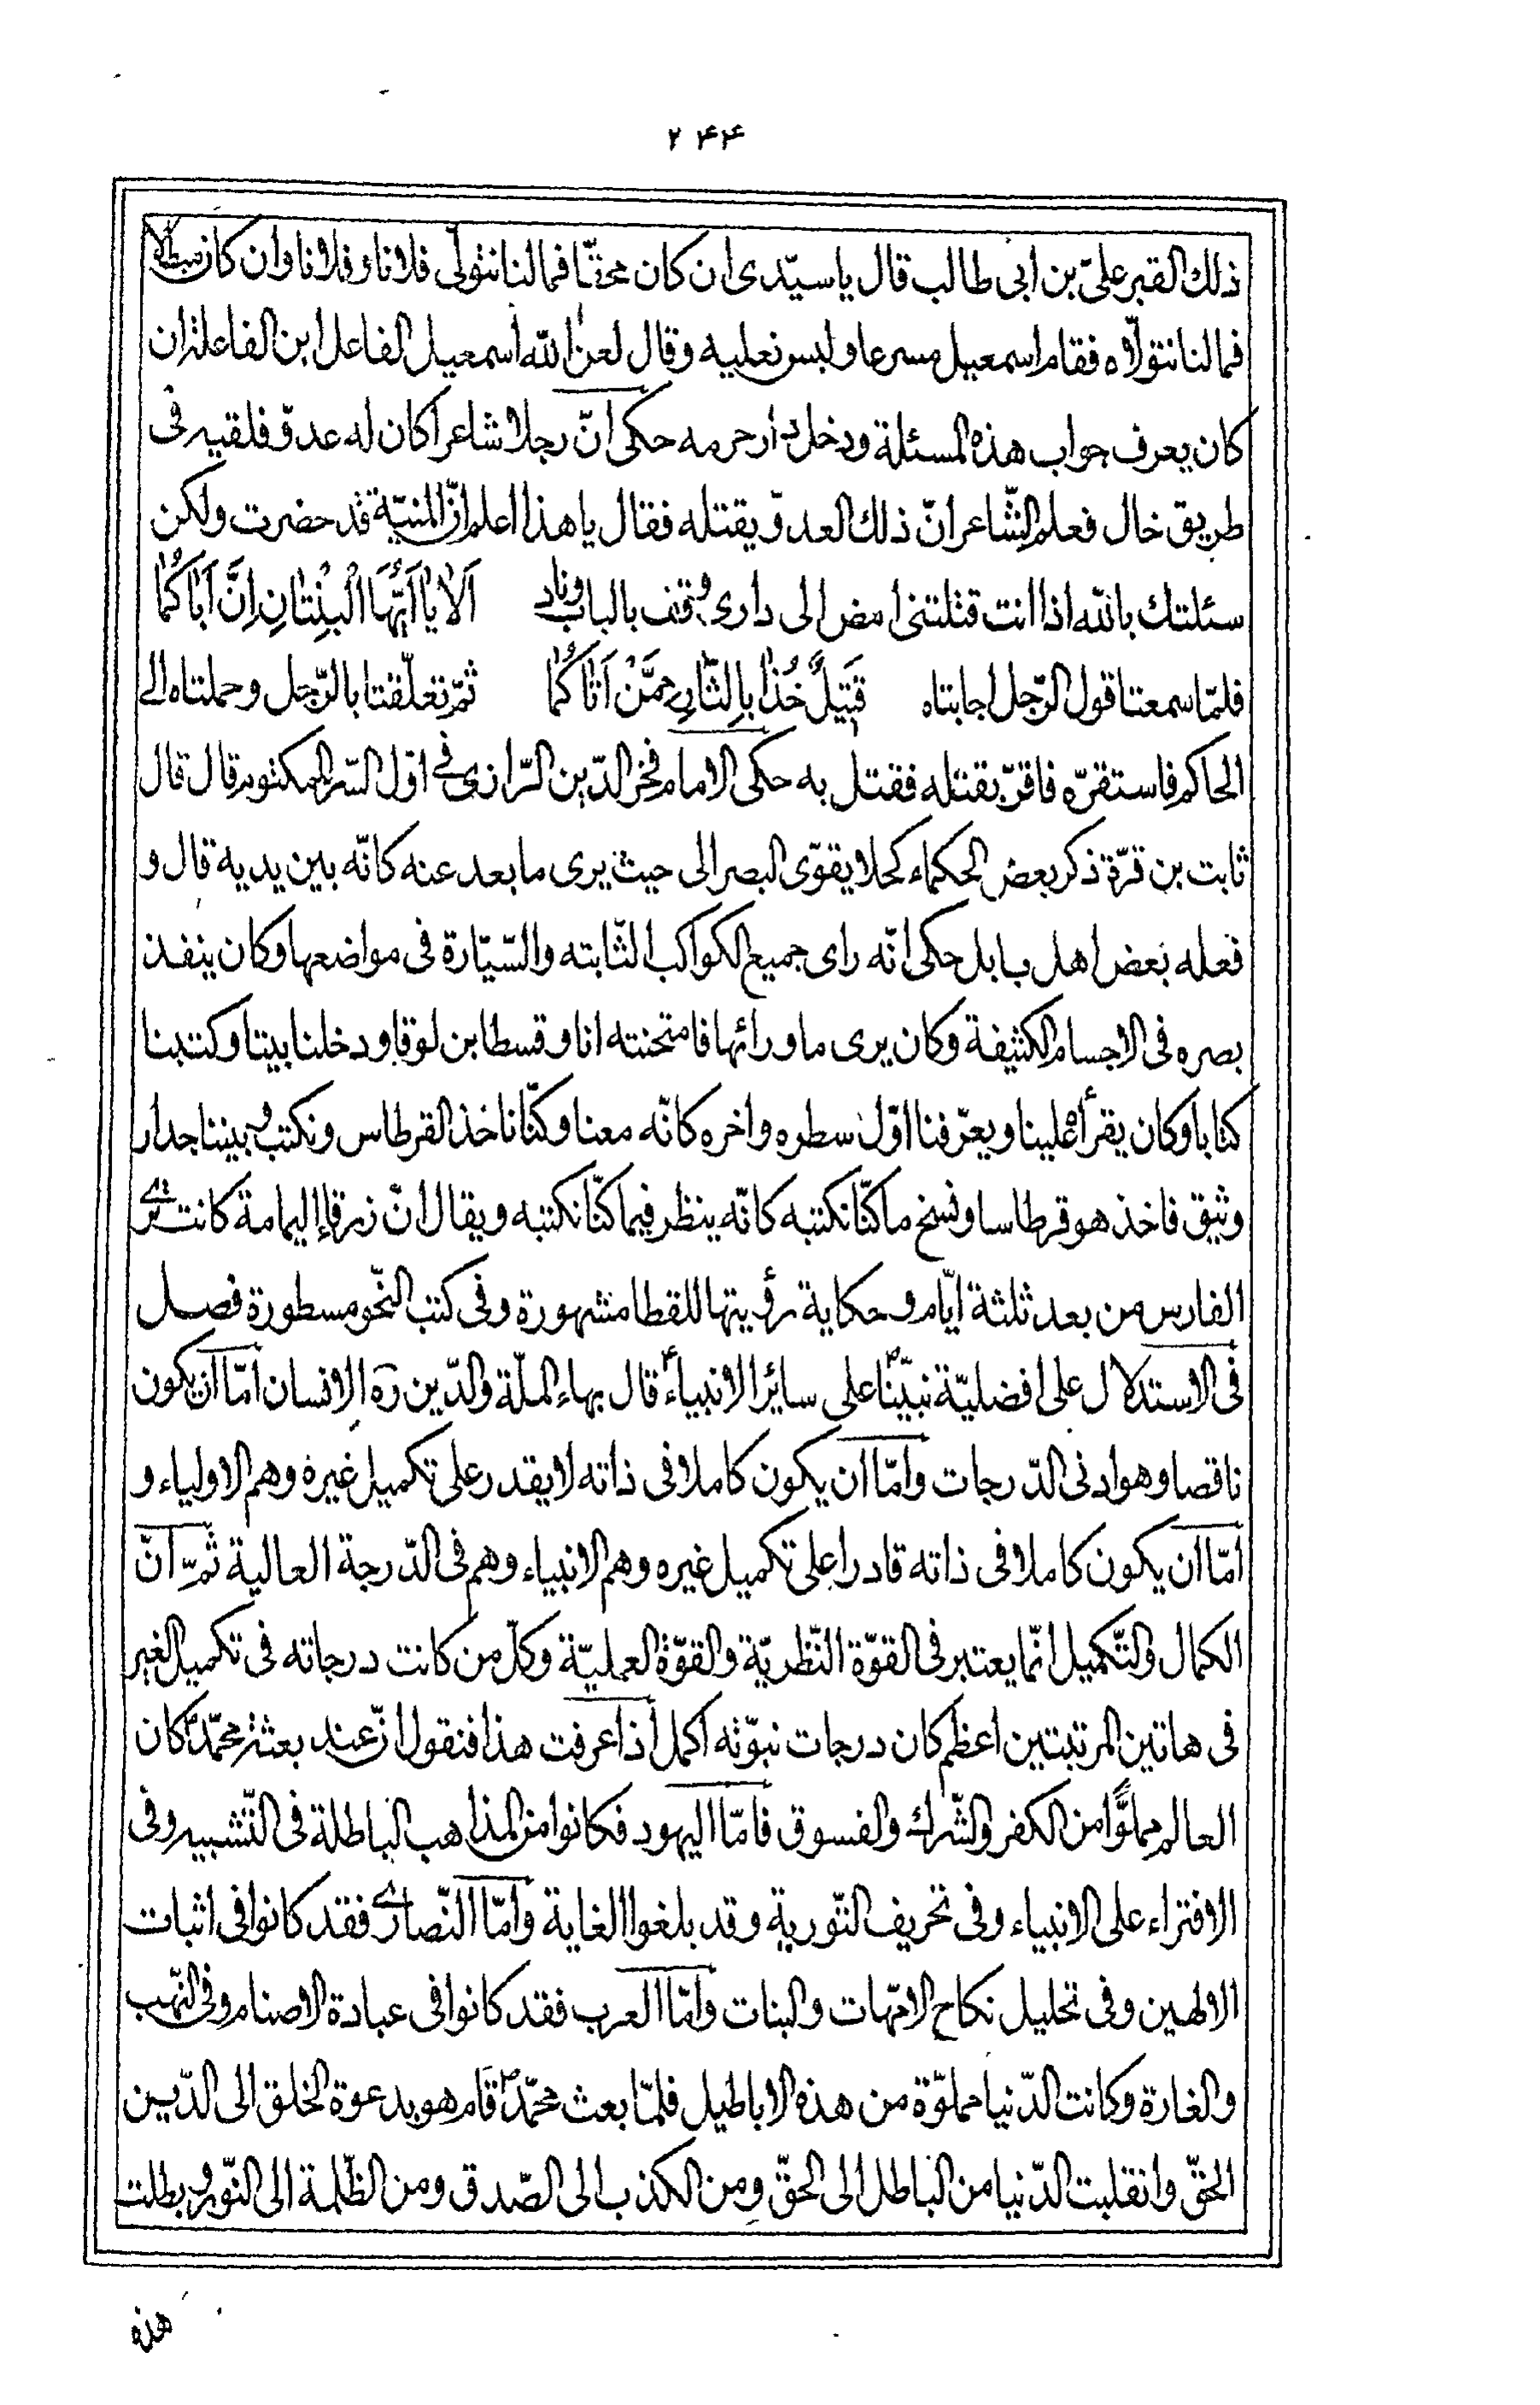 ۲۴۴
ذلك القبر علىّ بن ابى طالب قال يا سيّدى ان كان محقّا فما لنا نتولّى فلانا وفلانا وان كان مبطلا
فما لنا نتولّاه فقام اسمعيل مسرعا ولبس نعليه وقال لعن اللّه اسمعيل الفاعل ابن الفاعلة ان
كان يعرف جواب هذه المسئلة ودخل دار حرمه حكى انّ رجلا شاعرا كان له عدوّ فلقيه فى
طريق خال فعلم الشّاعر انّ ذلك العدوّ يقتله فقال يا هذا اعلم انّ المنيّة قد حضرت ولكن
سئلتك باللّه اذا انت قتلتنى امض الى دارى وقف بالباب وناد اَلا يا اَيُّهَا الْبِنْتانِ اِنَّ اَباكُما
فلمّا سمعتا قول الرّجل اجابتاه قَتيلٌ خُذا بِالثّارِ مِمَّنْ اَتاكُما ثمّ تعلّقتا بالرّجل وحملتاه الى
الحاكم فاستقرّه فاقرّ بقتله فقتل به حكى الامام فخر الدّين الرّازى فى اوّل السّر المكتوم قال قال
ثابت بن قرّة ذكر بعض الحكماء كحلا يقوّى البصر الى حيث يرى ما بعد عنه كانّه بين يديه قال و
فعله بعض اهل بابل حكى انّه راى جميع الكواكب الثّابته والسّيّارة فى مواضعها وكان ينفذ
بصره فى الاجسام الكثيفة وكان يرى ما ورائها فامتحنته انا وقسطا بن لوقا ودخلنا بيتا وكتبنا
كتابا وكان يقرأه علينا ويعرّفنا اوّل سطره واخره كانّه معنا وكنّا ناخذ القرطاس ونكتب وبيننا جدار
وثيق فاخذ هو قرطاسا ونسخ ما كنّا نكتبه كانّه ينظر فيما كنّا نكتبه ويقال انّ زرقاء اليمامة كانت ترى
الفارس من بعد ثلثة ايّام وحكاية رؤيتها للقطا مشهورة وفى كتب النّحو مسطورة فصل
فى الاستدلال على افضليّة نبيّناص على سائر الانبياءع قال بهاء الملّة والدّين ره الانسان امّا ان يكون
ناقصا وهو ادنى الدّرجات وامّا ان يكون كاملا فى ذاته لا يقدر على تكميل غيره وهم الاولياء و
امّا ان يكون كاملا فى ذاته قادرا على تكميل غيره وهم الانبياء وهم فى الدّرجة العالية ثمّ انّ
الكمال والتّكميل انّما يعتبر فى القوّة النّظريّة والقوّة العمليّة وكلّ من كانت درجاته فى تكميل الغير
فى هاتين المرتبتين اعظم كان درجات نبوّته اكمل اذا عرفت هذا فنقول انّ عند بعثة محمّدص كان
العالم مملوًّا من الكفر والشّرك والفسوق فامّا اليهود فكانوا من المذاهب الباطلة فى التّشبيه وفى
الافتراء على الانبياء وفى تحريف التّورية وقد بلغوا الغاية وامّا النّصارى فقد كانوا فى اثبات
الالهين وفى تحليل نكاح الامّهات والبنات وامّا العرب فقد كانوا فى عبادة الاصنام وفى النّهب
والغارة وكانت الدّنيا مملوّة من هذه الاباطيل فلمّا بعث محمّدص قام هو بدعوة الخلق الى الدّين
الحقّ وانقلبت الدّنيا من الباطل الى الحقّ ومن الكذب الى الصّدق ومن الظّلمة الى النّور وبطلت
هذه